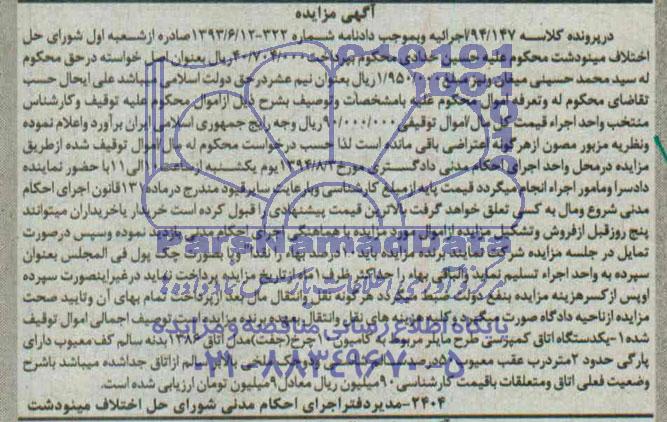 آگهی مزایده
درپرونده کلاسه ۹۴/۱۴۷اجرائیه وبموجب دادنامه شماره ۳۲۲-۱۳۹۳/۶/۱۲صادره ازشعبه اول شورای حل
اختلاف مینودشت محکوم علیه حسین حدادی محکوم بپرداخت ۴۰/۷۰۴/۰۰۰ریال بعنوان اصل خواسته درحق محکوم
له سیدمحمد حسینی میقان ونیم مبلغ ۱/۹۵۰/۰۰۰ریال بعنوان نیم عشردرحق دولت اسلامی میباشد علی ایحال حسب
تقاضای محکوم له وتعرفه اموال محکوم علیه بامشخصات وتوصیف بشرح ذیل ازاموال محکوم علیه توقیف وکارشناس
منتخب واحد اجراء قیمت کل مال/اموال توقیفی ۹۰/۰۰۰/۰۰۰ریال وجه رایج جمهوری اسلامی ایران برآورد واعلام نموده
ونظریه مزبور مصون ازهرگونه اعتراضی باقی مانده است لذا حسب درخواست محکوم له مال/اموال توقیف شده ازطریق
مزایده درمحل واحد اجرای احکام مدنی دادگستری مورخ ۱۳۹۴/۸/۳یوم یکشنبه ازساعت ۱۰الی۱۱با حضور نماینده
دادسرا ومامور اجراء انجام میگردد قیمت پایه ازمبلغ کارشناسی وبارعایت سایرقیود مندرج درماده۱۳۱قانون اجرای احکام
مدنی شروع ومال به کسی تعلق خواهد گرفت بالاترین قیمت پیشنهادی راقبول کرده است خریدار یاخریداران میتوانند
پنج روزقبل ازفروش وتشکیل مزایده ازاموال مورد مزایده باهماهنگی اجرای احکام مدنی بازدید نموده وسپس درصورت
تمایل در جلسه مزایده شرکت نمایند برنده مزایده باید ۱۰درصد بهاء را نقدا ویا بصورت چک پول فی المجلس بعنوان
سپرده به واحد اجراء تسلیم نماید والباقی بهاء را حداکثر ظرف ۱ماه ازتاریخ مزایده پرداخت نماید درغیراینصورت سپرده
اوپس ازکسرهزینه مزایده بنفع دولت ضبط میگردد هرگونه نقل وانتقال مال بعد ازپرداخت تمام بهای آن وتایید صحت
مزایده ازناحیه دادگاه صورت میگیرد وکلیه هزینه های نقل وانتقال بعهده برنده مزایده است توصیف اجمالی اموال توقیف
شده۱-یکدستگاه اتاق کمپرسی طرح مایلر مربوط به کامیون ۱۰چرخ(جفت)مدل اتاق ۱۳۸۶بدنه سالم کف معیوب دارای
پارگی حدود ۲متردرب عقب معیوب ۵۰درصد وجک ملخی سالم ازاتاق جداشده میباشد باشرح
وضعیت فعلی اتاق ومتعلقات باقیمت کارشناسی ۹۰میلیون ریال معادل۹میلیون تومان ارزیابی شده است.
۲۴۰۴-مدیردفتراجرای احکام مدنی شورای حل اختلاف مینودشت
ParsNamadData
مرکز فرآوری اطلاعات پارس نماد داده ها
پایگاه اطلاع رسانی مناقصه و مزایده
۰۲۱-۸۸۳۴۹۶۷۰-۵